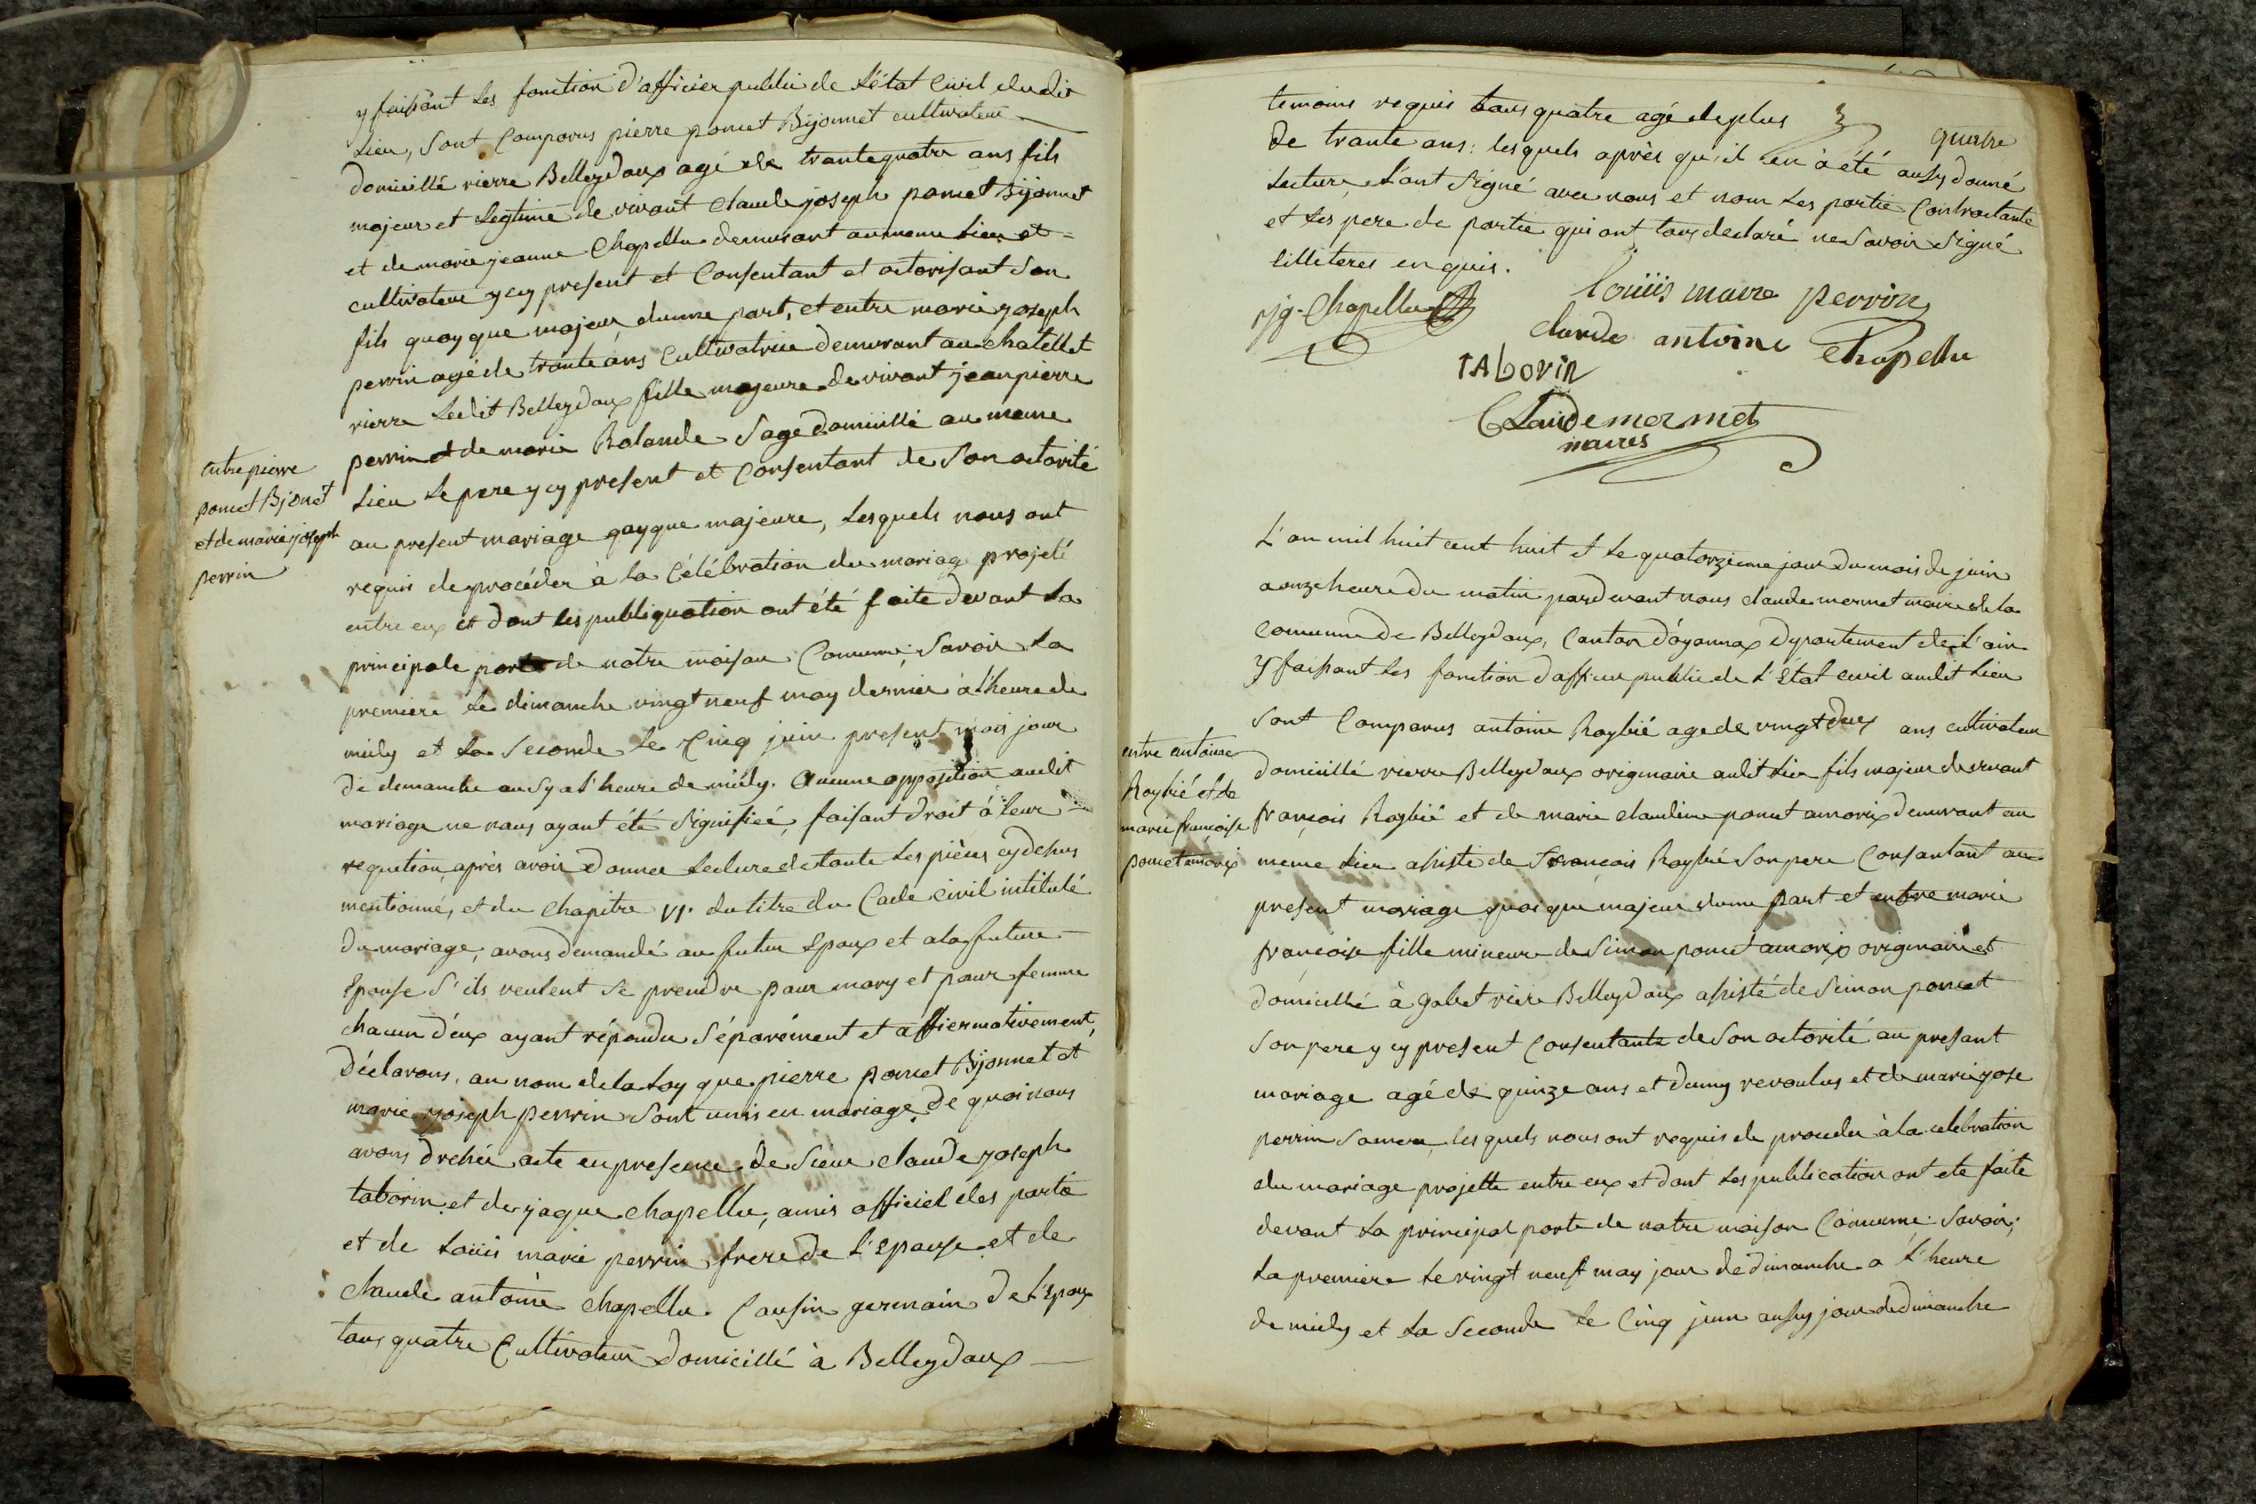 y faisant les fonction d'officier public de L'état Civil dudit
Lieu, sont Comparus pierre poncet Bijonnet cultivateur
domicillé rierre Belleydoux agé de trantequatre ans fils
majeur et Legitime de vivant Claude joseph poncet Bijonnet
et de marie jeanne Chapellu demurant au meme Lieu et
cultivateur y cy present et Consentant et actorisant Son
fils quoy que majeur d'unne part, et entre marie joseph
perrin agé de trante ans Cultivatrice demurant au chatellet
rierre Ledit Belleydoux fille majeure de vivant jean pierre
perrin et de marie Rolande Sage domicillé au meme
Lieu Le pere y cy present et Consentant de Son actorité
au present mariage qoyque majeure, Lesquels nous ont
requis de procéder à La Célébration du mariage projeté
entre eux et dont les publiquation ont été faite devant La
principale porte de notre maison Comune; Savoir La
premiere Le dimanche vingt neuf may dernier à l'heure de
midy et La Seconde Le Cinq juin present mois jour
de demanche ausy a l'heure de midy. Aucune opposition audit
mariage ne nous ayant été Signifiée, faisant droit à leur
requition, après avoir donner Lecture de toute Les pièces cy dessus
mentionné, et du Chapitre VI. du titre du Code Civil intitulé
du mariage, avons demandé au futur Epoux et a la future
Epouse S'ils veulent Se prendre pour mary et pour femme
chacun d'eux ayant répondu Séparément et affiermativement,
Déclarons, au nom de la Loy que pierre poncet Bijonnet et
marie joseph perrin Sont unis en mariage. De quoi nous
avons dressée acte en presence de Sieur claude joseph
taborin et de jaque chapellu, amis officiel des partie
et de Loüis marie perrin frere de L'Epouse et de
Claude antoine chapellu Cousin germain de L'Epoux
tous quatre Cultivateur domicillé à Belleydoux
entre pierre
poncet Bijonet
et de marie joseph
perrin
quatre
temoins requis tous quatre agé de plus
de trante ans: lesquels après qu'il en à été aussy donné
Lecture, L'ont Signé avec nous et nom Les partie Contractante
et Les pere de partie qui ont tous declaré ne Savoir Signé
illiteres enquis.
jg. Chapellu
loüiis marie perrin
claude antoine Chapellu
TAborin
Claude mermet
maires
L'an mil huit cent huit et Le quatorzieme jour du mois de juin
a onze heure du matin pardevant nous claude mermet maire de la
Comunne de Belleydoux, Canton d'oyonnax departement de L'ain
Y faisant Les fonction d'officier public de L'Etat civil audit Lieu
Sont Comparus antoine Roybié age de vingt deux ans cultivateur
domicillé rierre Belleydoux originaire audit Lieu fils majeur de vivant
françois Roybié et de marie claudine poncet amorix demurant au
meme Lieu assisté de françois Roybié Son pere Consantant au
present mariage quoique majeur d'unne part et entre marie
françoise fille mineure de Simon poncet amorix originaire et
domicillé à gobet rière Belleydoux assisté de Simon poncet
Son pere y cy present Consentante de Son actorité au presant
mariage agé de quinze ans et demy revoulus et de marie jose
perrin Sa mere, les quels nous ont requis de proceder à la celebration
du mariage projetté entre eux et dont Les publication ont ete faite
devant La principal porte de notre maison Comunne Savoir;
La premiere Le vingt neuf may jour de dimanche a L'heure
de midy et La Seconde Le Cinq juin aussy jour de dimanche
entre antoine
Roybié et de
marie françoise
poncet amorix